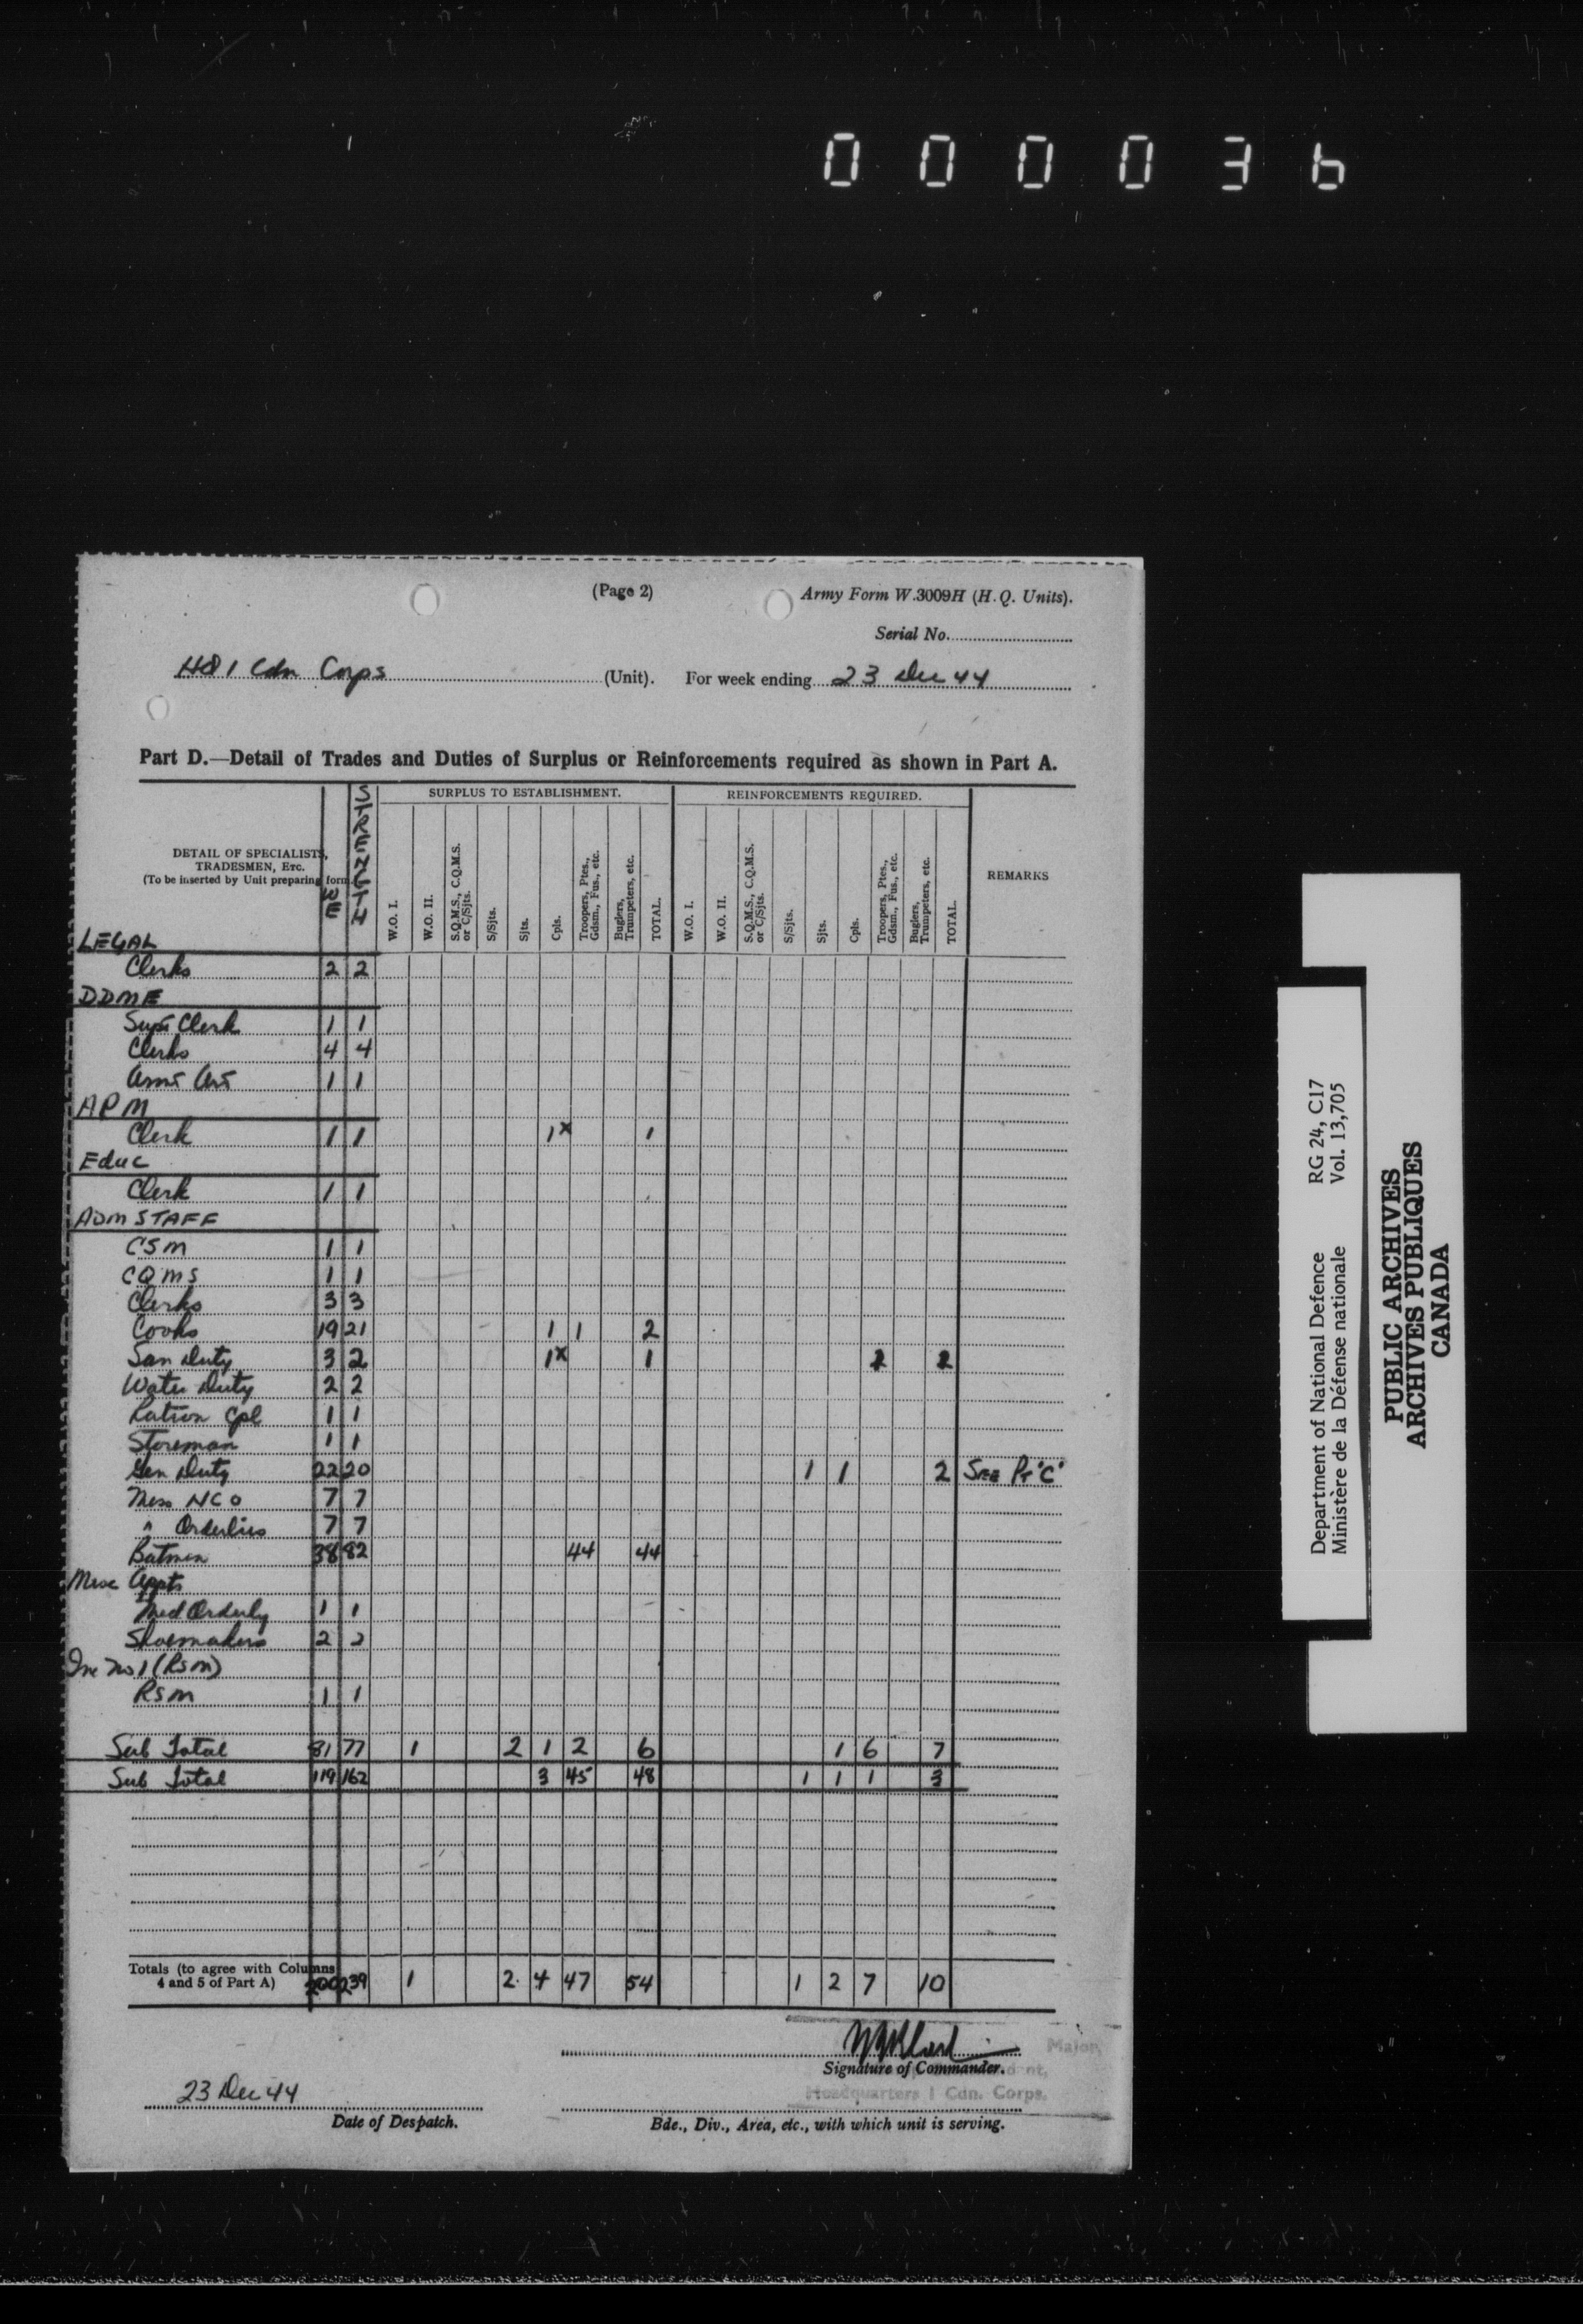 000036
(Page 2)
Army Form W.3009H (H.Q. Units).
Serial No.
HQ 1 Cdn Corps (Unit). For week ending 23 Dec 44
Part D.—Detail of Trades and Duties of Surplus or Reinforcements required as shown in Part A.
DETAIL OF SPECIALISTS, TRADESMEN, ETC.
(To be inserted by Unit preparing form
WE
STRENGTH
SURPLUS TO ESTABLISHMENT.
W.O. I.
W.O. II.
S.Q.M.S., C.Q.M.S. or C/Sjts.
S/Sjts.
Sjts.
Cpls.
Troopers, Ptes., Gdsm., Fus., etc.
Buglers, Trumpeters, etc.
TOTAL.
REINFORCEMENTS REQUIRED.
W.O. I.
W.O. II.
S.Q.M.S., C.Q.M.S. or C/Sjts.
S/Sjts.
Sjts.
Cpls.
Troopers, Ptes., Gdsm., Fus., etc.
Buglers, Trumpeters, etc.
TOTAL.
REMARKS
LEGAL
Clerks 2 2
DDME
Supt Clerk 1 1
Clerks 4 4
Armt Art 1 1
APM
Clerk 1 1 1x 1
Educ
Clerk 1 1
ADM STAFF
CSM 1 1
CQMS 1 1
Clerks 3 3
Cooks 19 21 1 1 2
San Duty 3 2 1x 1 2 2
Water Duty 2 2
Ration Cpl 1 1
Storeman 1 1
Gen Duty 22 20 1 1 2 SEE Pt "C"
Mess NCO 7 7
" Orderlies 7 7
Batmen 38 82 44 44
Misc Appts
Med Orderly 1 1
Shoemakers 2 2
Inc No 1 (RSM)
RSM 1 1
Sub Total 81 77 1 2 1 2 6 1 6 7
Sub Total 119 162 3 45 48 1 1 1 3
Totals (to agree with Columns 4 and 5 of Part A) 200 239 1 2 4 47 54 1 2 7 10
Major,
Signature of Commander.
Headquarters 1 Cdn. Corps.
23 Dec 44
Date of Despatch.
Bde., Div., Area, etc., with which unit is serving.
Department of National Defence RG 24, C17
Ministère de la Défense nationale Vol. 13,705
PUBLIC ARCHIVES
ARCHIVES PUBLIQUES
CANADA